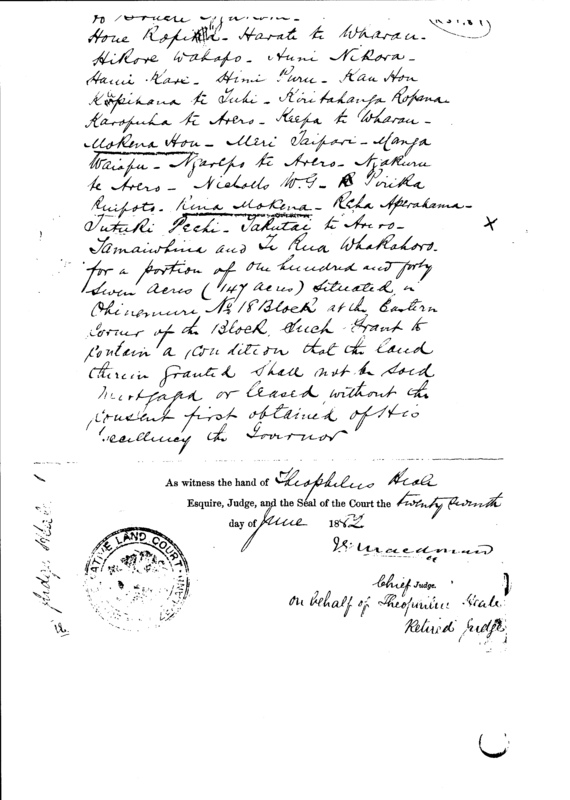 Hone Ropiha - Harate te Wharau -
Hikore Wahapo - Huni Nikora -
Hamie Kari - Himi Puru - Kau Hou
Kapihana te Tuhi - Kiritahanga Ropana
Karapuha te Arero - Keepa te Wharau -
Mokena Hou - Meri Taipari - Manga
Waiapu - Ngarepo te Arero - Ngakuru
te Arero - Nicholls W.G - Pirika
Ruipoto - Rina Mokena - Reha Aperahama -
Tutuki Pechi - Takutai te Arero -
Tamaiwhina and Te Rua Whakahoro.
for a portion of one hundred and forty
seven acres (147 acres) situated in
Ohinemuri No 18 Block at the Eastern
Corner of the Block. Such Grant to
contain a condition that the land
therein granted shall not be sold
mortgaged or leased without the
consent first obtained of His
Excellency the Governor
As witness the hand of Theophilus Heale
Esquire, Judge, and the Seal of the Court the twenty seventh
day of June 1882
Chief Judge.
on behalf of Theophilus Heale
Retired Judge
NATIVE LAND COURT